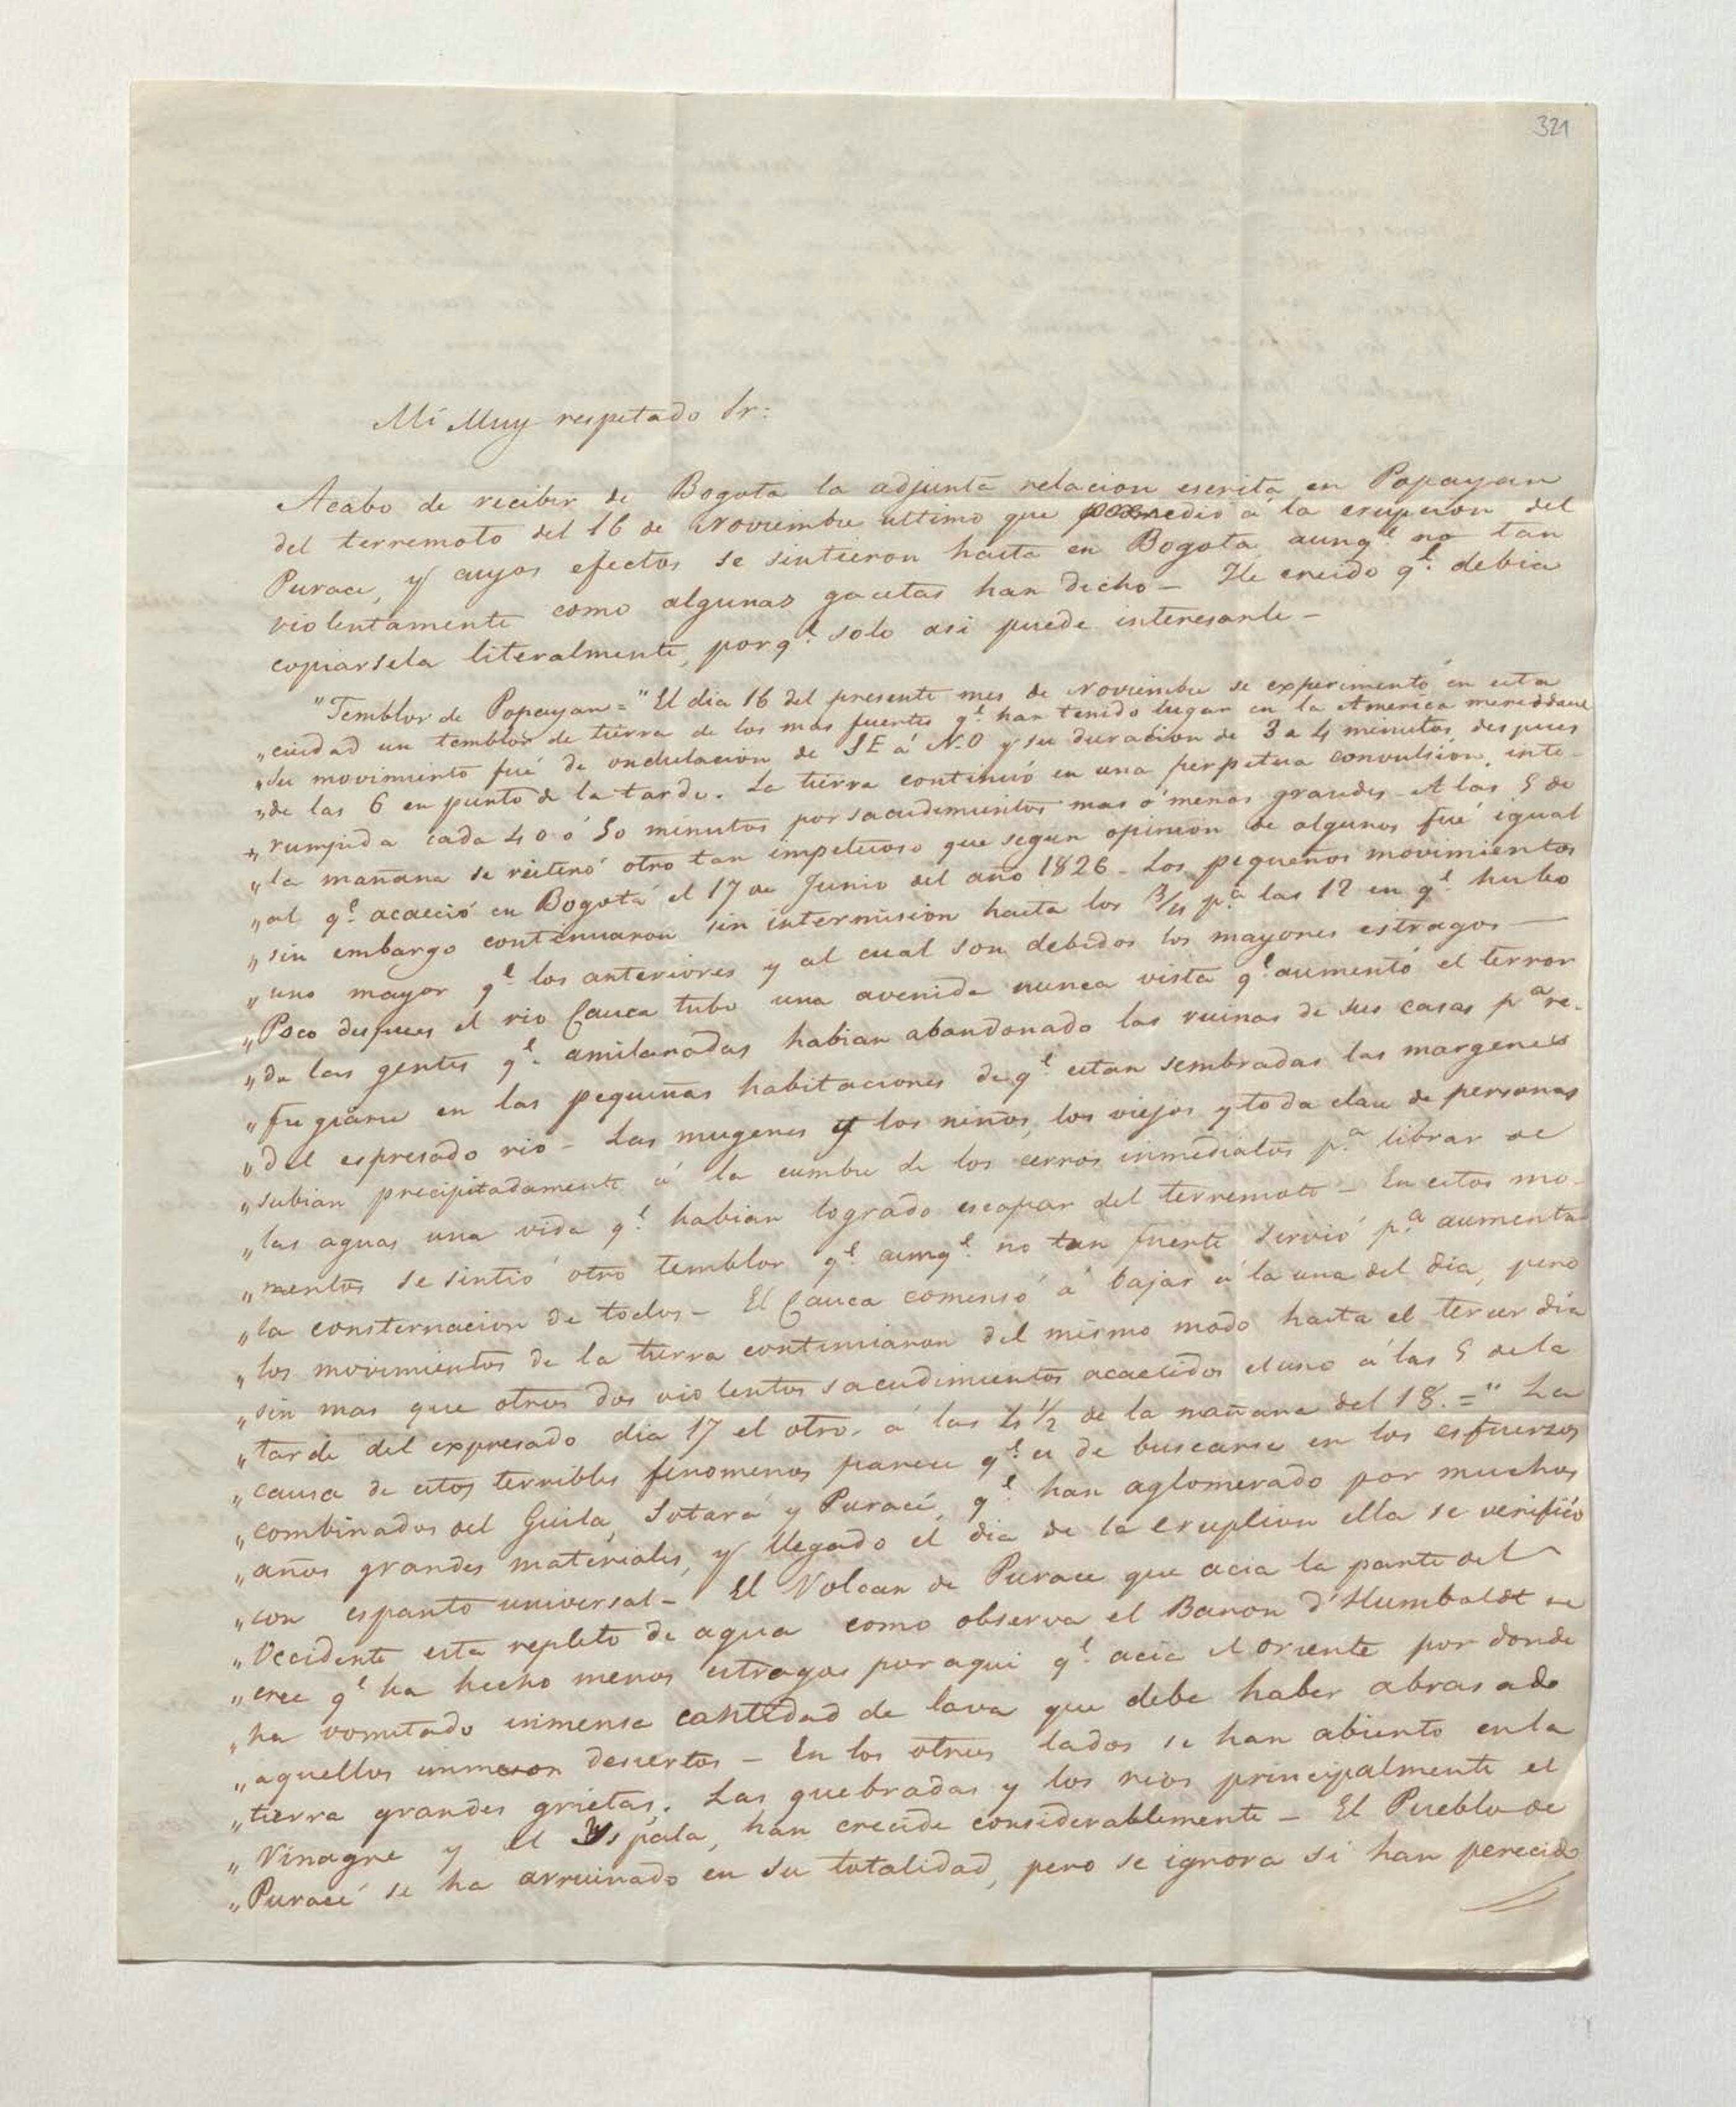 321
Mi Muy respetado Sr:
Acabo de recibir de Bogota la adjunta relacion escrita en Popayan
del terremoto del 16 de Noviembre ultimo que precedio á la erupcion del
Purace, y cuyos efectos se sintieron hasta en Bogota, aunqe. no tan
violentamente como algunas gacetas han dicho - He creido qe. debia
copiarsela literalmente, porqe. solo asi puede interesarle -
"Temblor de Popayan = "El dia 16 del presente mes de Noviembre se experimentó en esta
„ciudad un temblor de tierra de los mas fuertes qe. han tenido lugar en la America meridional
„Su movimiento fué de ondulacion de SE á N-O y su duracion de 3 a 4 minutos, despues
„de las 6 en punto de la tarde. La tierra continuó en una perpetua convulsion, inte-
„rumpida cada 40 ó 50 minutos por sacudimientos mas ó menos grandes - A las 5 de
„la mañana se reiteró otro tan impetuoso que segun opinion de algunos fué igual
„al qe. acaeció en Bogotá el 17 de Junio del año 1826 - Los pequeños movimientos
„sin embargo continuaron sin intermision hasta los 3/4 pa. las 12 en qe. hubo
„uno mayor qe. los anteriores y al cual son debidos los mayores estragos —
„Poco despues el rio Cauca tubo una avenida nunca vista qe. aumentó el terror
„de las gentes qe. amilanadas habian abandonado las ruinas de sus casas pa. re-
„fugiarse en las pequeñas habitaciones de qe. estan sembradas las margenes
„del espresado rio - Las mugeres y los niños, los viejos y toda clase de personas
„subian precipitadamente á la cumbre de los cerros inmediatos pa. librar de
„las aguas una vida qe. habian logrado escapar del terremoto - En estos mo-
„mentos se sintió otro temblor qe. aunqe. no tan fuerte sirvió pa. aumentar
„la consternacion de todos - El Cauca comensó á bajar á la una del dia, pero
„los movimientos de la tierra continuaron del mismo modo hasta el tercer dia
„sin mas que otros dos violentos sacudimientos acaecidos el uno á las 5 de la
„tarde del expresado dia 17 el otro, á las 4 1/2 de la mañana del 18. =" La
„causa de estos terribles fenomenos parece qe. es de buscarse en los esfuerzos
„combinados del Guila, Sotará y Puracé, qe. han aglomerado por muchos
„años grandes materiales, y llegado el dia de la erupcion ella se verificó
„con espanto universal - El Volcan de Purace que acia la parte del
„Occidente esta repleto de agua como observa el Baron d'Humboldt se
„cree qe. ha hecho menos estragos por aqui qe. acia el Oriente por donde
„ha vomitado inmensa cantidad de lava que debe haber abrasado
„aquellos inmensos desiertos - En los otros lados se han abierto en la
„tierra grandes grietas. Las quebradas y los rios principalmente el
„Vinagre y el Yspala, han crecido considerablemente - El Pueblo de
„Puracé se ha arruinado en su totalidad, pero se ignora si han perecido